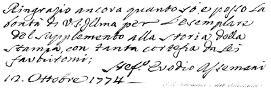 Ringrazio ancora quanto sò e posso la
bontà di V. S. Illma per l'esemplare
del Supplemento alla Storia della
Stampa, con tanta cortesia da Lei
favoritomi;
Stef.º Evodio Assemani
12. Ottobre 1774.